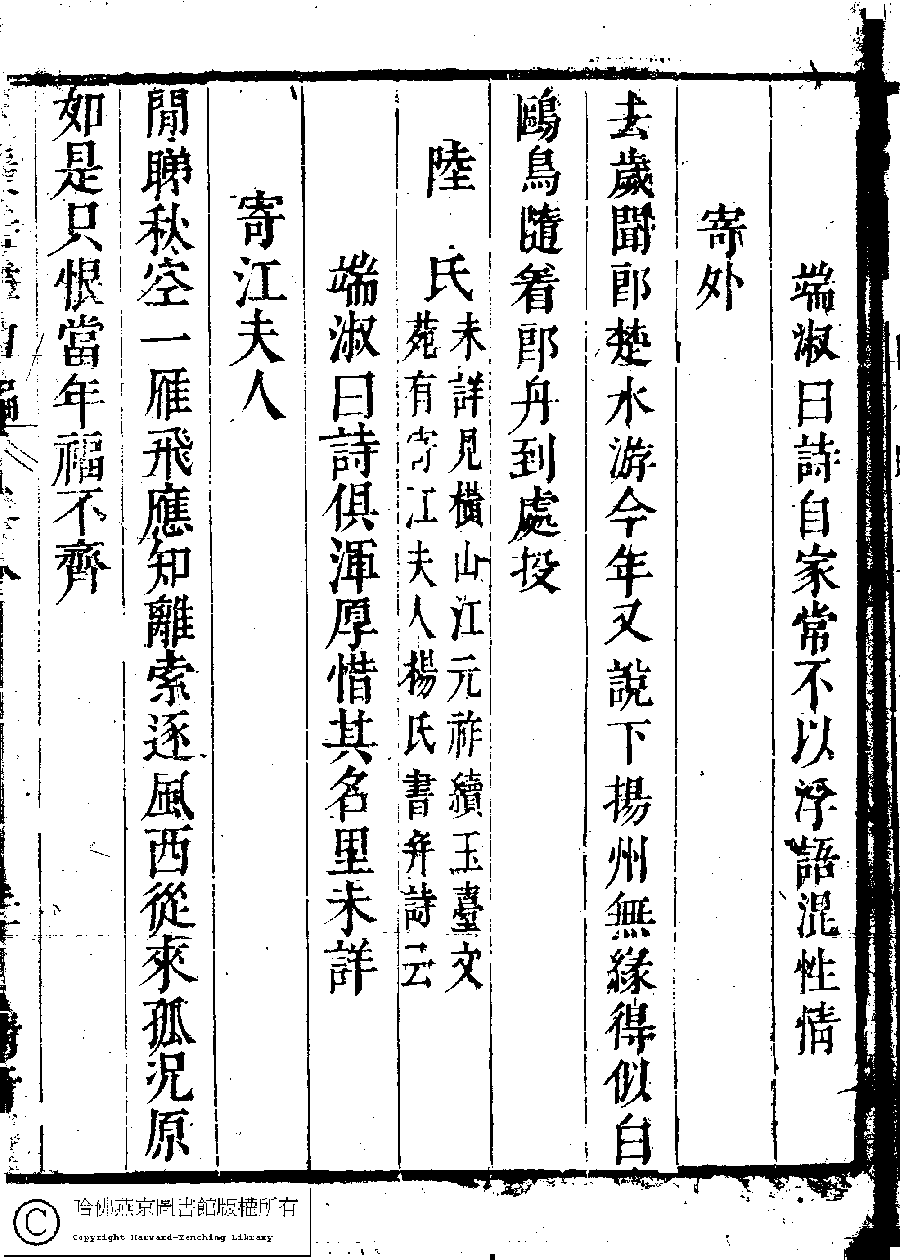 端淑曰詩自家常不以浮語混性情
寄外
去歲聞郎楚水游今年又說下揚州無緣得似白
鷗鳥隨着郎舟到處投
陸氏
未詳見橫山江元祚續玉臺文
苑有寄江夫人楊氏書并詩云
端淑曰詩俱渾厚惜其名里未詳
寄江夫人
閒睇秋空一雁飛應知離索逐風西從來孤況原
如是只恨當年福不齊
哈佛燕京圖書館版權所有
Copyright Harvard-Yenching Library